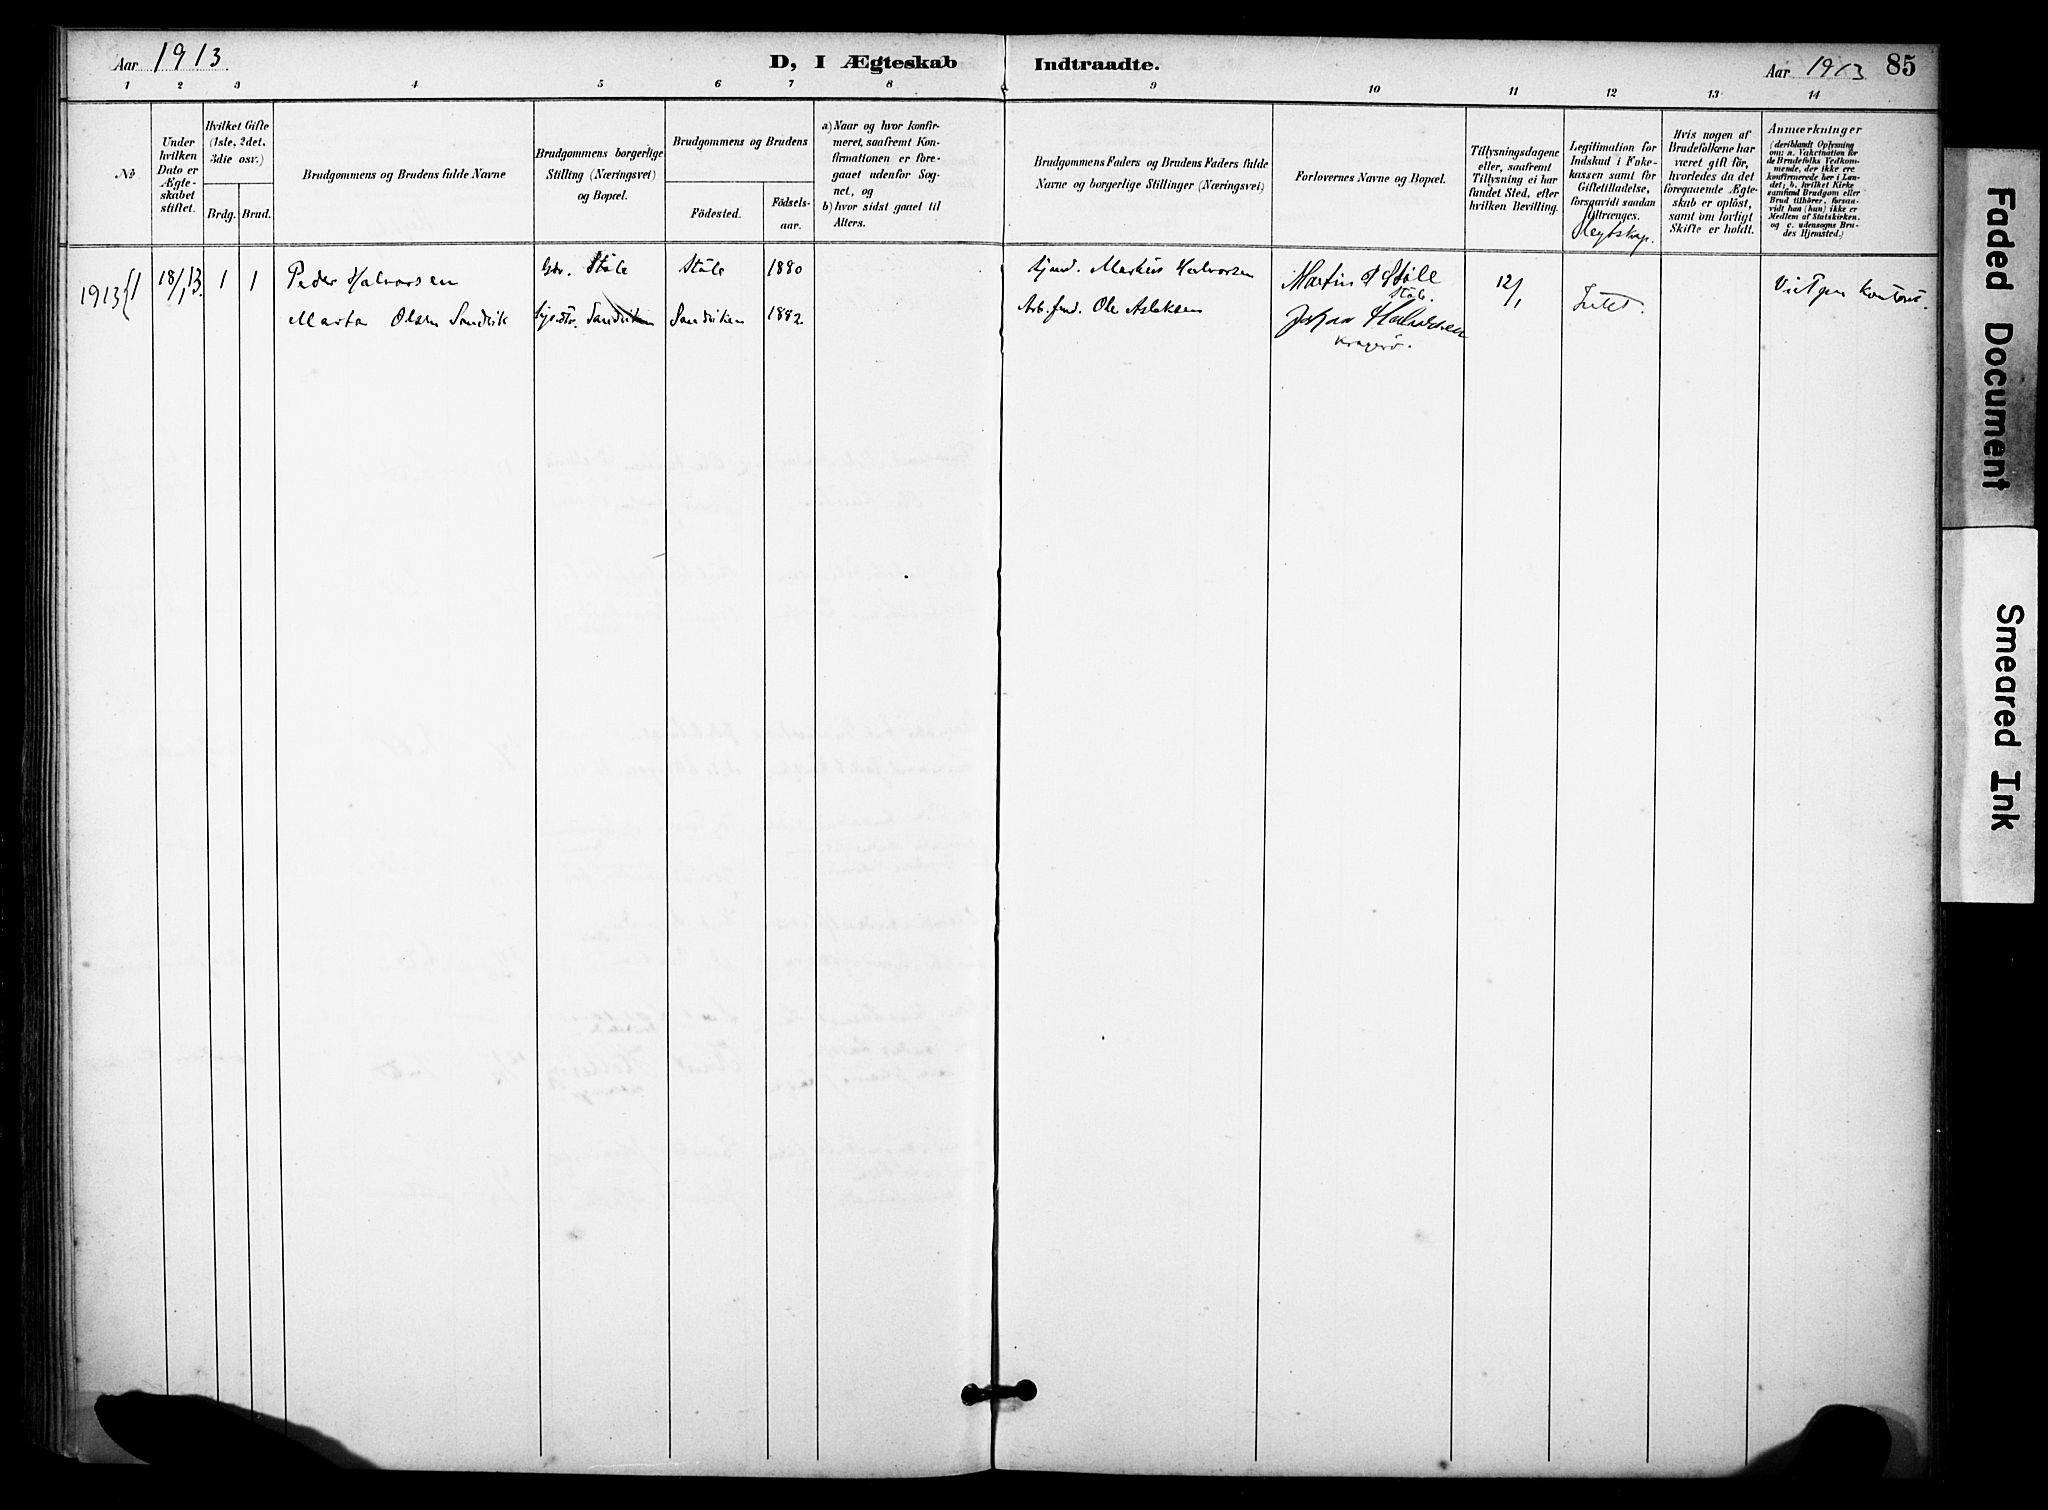 Aar 1913
D, I Ægteskab Indtraadte.
Aar 1913 85
1 2 3 4 5 6 7 8 9 10 11 12 13 14
No.
Under hvilken Dato er Ægteskabet stiftet.
Hvilket Gifte (1ste, 2det, 3die osv.)
Brdg. Brud.
Brudgommens og Brudens fulde Navne
Brudgommens borgerlige Stilling (Næringsvei) og Bopæl.
Brudgommens og Brudens
Fødested. Fødselsaar.
a) Naar og hvor konfirmeret, saafremt Konfirmationen er foregaaet udenfor Sognet, og
b) hvor sidst gaaet til Alters.
Brudgommens Faders og Brudens Faders fulde Navne og borgerlige Stillinger (Næringsvei)
Forlovernes Navne og Bopæl.
Tillysningsdagene eller, saafremt Tillysning ei har fundet Sted, efter hvilken Bevilling.
Legitimation for Indskud i Enkekassen samt for Giftetilladelse, forsaavidt saadan tiltrænges.
Hvis nogen af Brudefolkene har været gift før, hvorledes da det foregaaende Ægteskab er opløst, samt om lovligt Skifte er holdt.
Anmærkninger (deriblandt Oplysning om: a. Vakcination for de Brudefolks Vedkommende, der ikke ere konfirmerede her i Landet; b. hvilket Kirkesamfund Brudgom eller Brud tilhører, forsaavidt han (hun) ikke er Medlem af Statskirken, og c. udensogns Brudes Hjemsted.)
1913 1 18/1 13. 1 1 Peder Halvorsen Gbr. Støle Støle 1880 Markus Halvorsen Martin Støle 12/1
Støle.
Olsen Sandvik Sandviken Sandviken 1882 Ole Aslaksen Halvorsen Intet.
Kragerø.
Faded Document
Smeared Ink